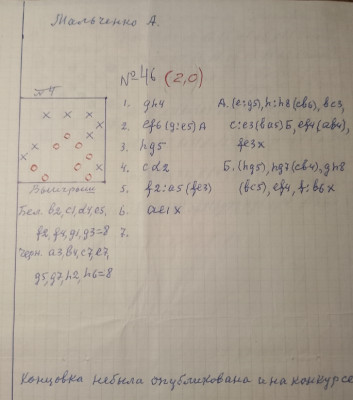 Мальченко А.
№46 (2,0)
1. gh4 А.(e:g5), h:h8(cb6), bc3,
2. ef6 (g:e5) А c:e3(ba5) Б, ef4(ab4),
3. hg5 fe3x
4. cd2 Б.(hg5), hg7(cb4), gh8
5. f2:a5 (fe3) (bc5), ef4, f:b6x
6. ae1x
7.
Выигрыш
Бел. b2, c1, d4, e5,
f2, f4, g1, g3=8
Черн. a3, b4, c7, e7,
g5, g7, h2, h6=8
Концовка небыла опубликована и на конкурсе